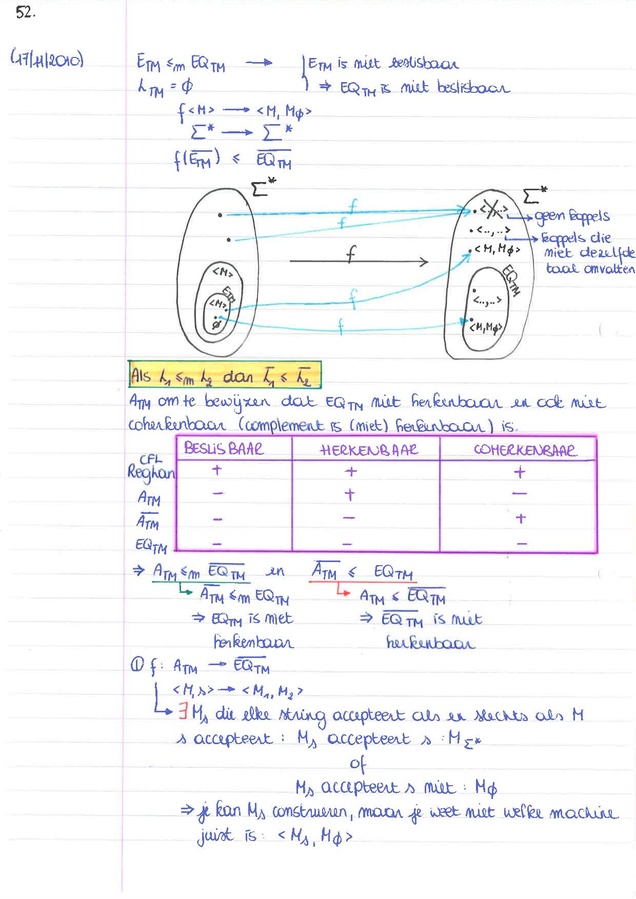 52.
(17/11/2010) E_TM ≤m EQ_TM → E_TM is niet beslisbaar
L_TM = ∅ ⇒ EQ_TM is niet beslisbaar
f <M> → <M, M∅>
Σ* → Σ*
f(E̅_T̅M̅) ≤ E̅Q̅_T̅M̅
Σ* f Σ*
f <..> → geen koppels
<..,..> → koppels die
niet dezelfde
taal omvatten
<M> f <M, M∅>
E_TM EQ_TM
<M> f <..,..>
∅ f <M,M∅>
Als L₁ ≤m L₂ dan L̅₁ ≤ L̅₂
A_TM om te bewijzen dat EQ_TM niet herkenbaar en ook niet
coherkenbaar (complement is (niet) herkenbaar) is.
BESLISBAAR HERKENBAAR COHERKENBAAR
CFL
+ + +
A_TM − + −
A̅_T̅M̅ − − +
EQ_TM − − −
⇒ A_TM ≤m E̅Q̅_T̅M̅ en A̅_T̅M̅ ≤ EQ_TM
A̅_T̅M̅ ≤m EQ_TM A_TM ≤ E̅Q̅_T̅M̅
⇒ EQ_TM is niet ⇒ E̅Q̅_T̅M̅ is niet
herkenbaar herkenbaar
① f: A_TM → E̅Q̅_T̅M̅
<M,s> → <M₁, M₂>
∃ Ms die elke string accepteert als en slechts als M
s accepteert : Ms accepteert s : M_Σ*
of
Ms accepteert s niet : M∅
⇒ je kan Ms construeren, maar je weet niet welke machine
juist is : <Ms, M∅>